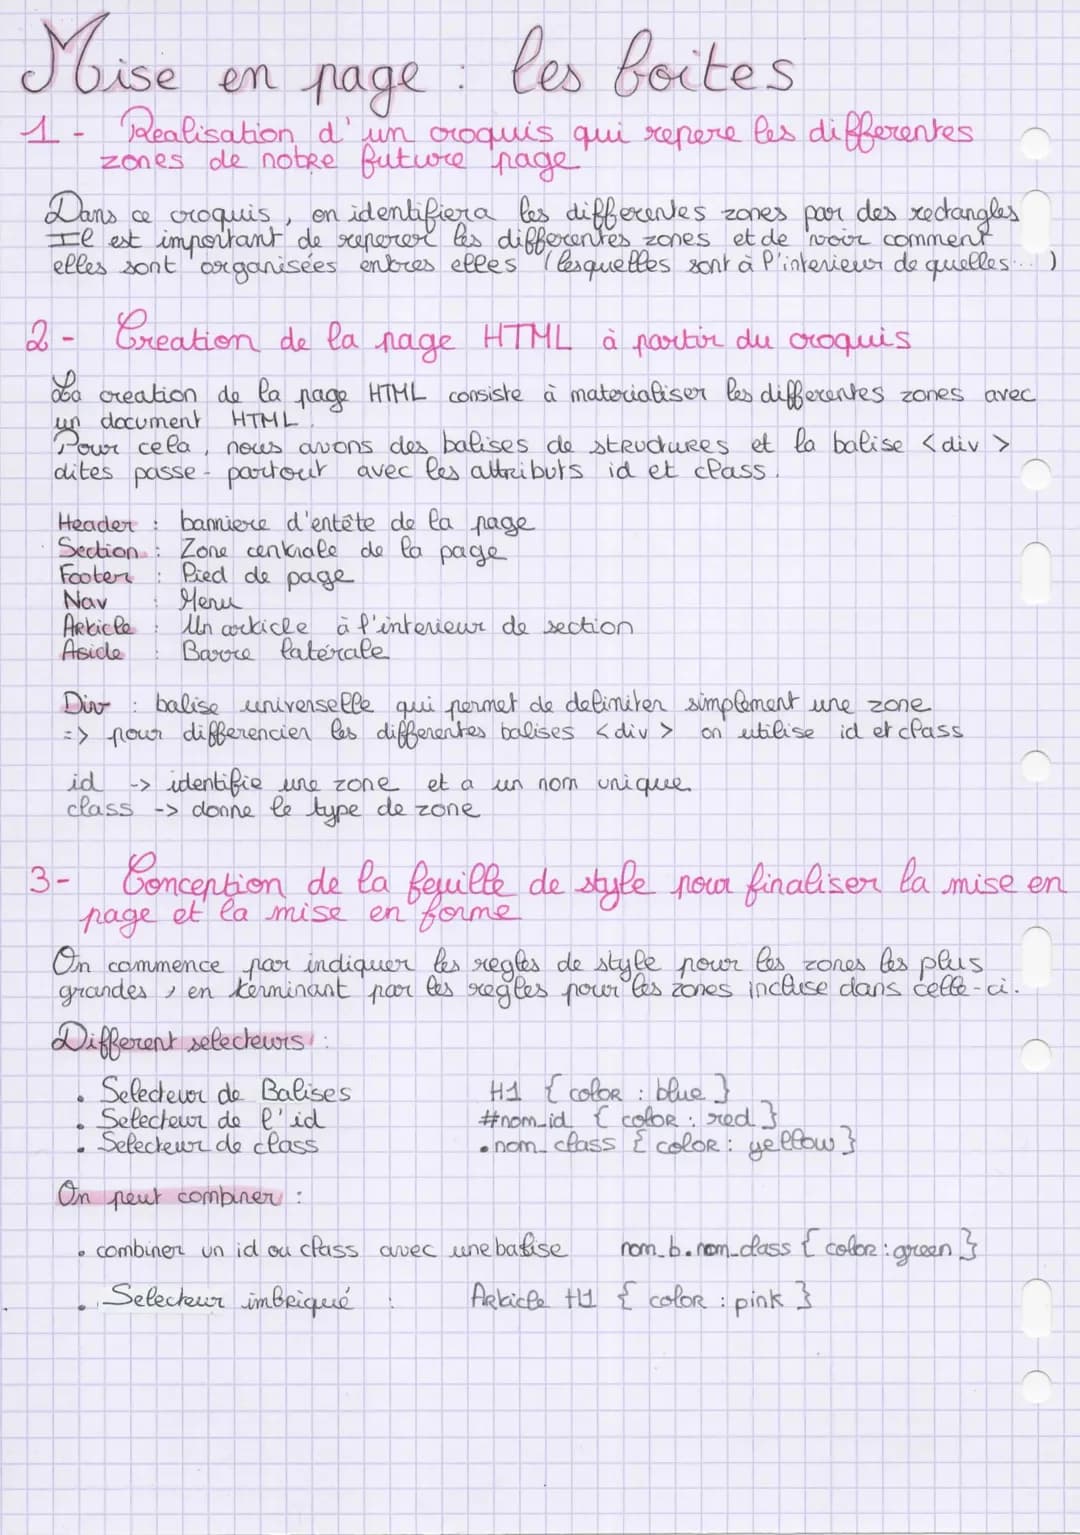 Mise en page : les boites
1 - Realisation d'un croquis qui repere les differentes
zones de notre future page
Dans ce croquis, on identifiera les differentes zones par des rectangles
Il est important de reperer les differentes zones et de voir comment
elles sont organisées entres elles (lesquelles sont à l'interieur de quelles... )
2 - Creation de la page HTML à partir du croquis
La creation de la page HTML consiste à materialiser les differentes zones avec
un document HTML.
Pour cela, nous avons des balises de structures et la balise <div>
dites passe-partout avec les attributs id et class.
Header : banniere d'entête de la page
Section : Zone centrale de la page
Footer : Pied de page
Nav : Menu
Article : Un article à l'interieur de section
Aside : Barre latérale
Div : balise universelle qui permet de delimiter simplement une zone
=> pour differencier les differentes balises <div> on utilise id et class
id -> identifie une zone et a un nom unique.
class -> donne le type de zone
3- Conception de la feuille de style pour finaliser la mise en
page et la mise en forme
On commence par indiquer les regles de style pour les zones les plus
grandes, en terminant par les regles pour les zones incluse dans celle-ci.
Different selecteurs :
• Selecteur de Balises H1 { color : blue }
• Selecteur de l'id #nom_id { color : red }
• Selecteur de class .nom_class { color : yellow }
On peut combiner :
• combiner un id ou class avec une balise nom_b.nom_class { color : green }
• Selecteur imbriqué : Article H1 { color : pink }